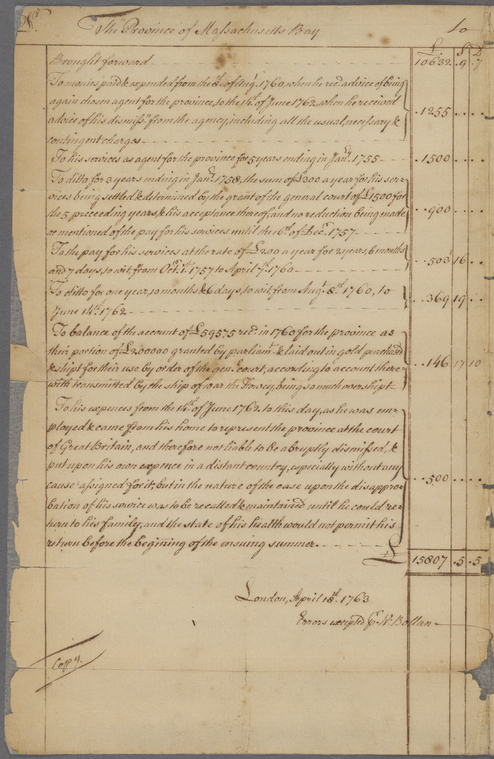 The Province of Massachusetts Bay to
£ S D
Brought forward 10632 . 9 . 7
To monies paid & expended from the 8th of Augt. 1760, when he recd. advice of being
again chosen agent for the province, to the 14th. of June 1762, when he received
advice of his dismissn. from the agency, including all the usual, necessary &
contingent charges 1255
To his services as agent for the province for 5 years ending in Janry. 1755 1500
To ditto for 3 years ending in Janry. 1758, the sum of £300 a year for his ser-
vices being settled & determined by the grant of the general court of £1500 for
the 5 preceeding years & his acceptance thereof, and no reduction being made
or mentioned of the pay for his services until the 16th. of Decr. 1757 900
To the pay for his services at the rate of £200 a year for 2 years, 6 months
and 7 days, to wit, from Octr. 1st. 1757 to April 7th. 1760 503 16
To ditto for one year, 10 months & 6 days, to wit, from Augt. 8th. 1760, to
June 14th. 1762 369 19
To balance of the account of £59575 recd. in 1760 for the province as
their portion of £200000 granted by parliamt. & laid out in gold purchased
& shipt for their use by order of the genl. court, according to account there-
with transmitted by the ship of war the Fowey, being so much overshipt 146 17 10
To his expences from the 14th. of June 1762 to this day, as he was em-
ployed & came from his home to represent the province at the court
of Great Britain, and therefore not liable to be abruptly dismissed, &
put upon his own expence in a distant country, especially without any
cause assigned for it, but in the nature of the case upon the disappro-
bation of his service was to be recalled & maintained until he could re-
turn to his family, and the state of his health would not permit his
return before the begining of the ensuing summer 500
£ 15807 . 5 . 5
London, April 18th. 1763
Errors excepted pr. W. Bollan
Copy.